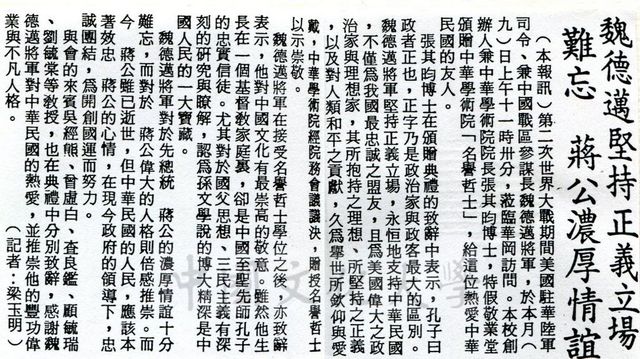 魏德邁堅持正義立場
難忘　蔣公濃厚情誼
（本報訊）第二次世界大戰期間美國駐華陸軍
司令、兼中國戰區參謀長魏德邁將軍，於本月（
九）日上午十一時卅分，蒞臨華岡訪問。本校創
辦人兼中華學術院院長張其昀博士，特假敬業堂
頒贈中華學術院「名譽哲士」，給這位熱愛中華
民國的友人。
張其昀博士在頒贈典禮的致辭中表示，孔子曰
政者正也，正字乃是政治家與政客最大的區別。
魏德邁將軍堅持正義立場，永恒地支持中華民國
，不僅為我國最忠誠之盟友，且為美國偉大之政
治家與理想家，其所抱持之理想、所堅持之正義
，以及對人類和平之貢獻，久為舉世所欽仰與愛
戴，中華學術院經院務會議議決，贈授名譽哲士
以示崇敬。
魏德邁將軍在接受名譽哲士學位之後，亦致辭
表示，他對中國文化有最崇高的敬意，雖然他生
長在一個基督教家庭裏，卻是中國至聖先師孔子
的忠實信徒。尤其對於國父思想、三民主義有深
刻的研究與瞭解，認為孫文學說的博大精深是中
國人民的一大寶藏。
魏德邁將軍對於先總統　蔣公的濃厚情誼十分
難忘，而對於　蔣公偉大的人格則倍感推崇。而
今　蔣公雖已逝世，但中華民國的人民，應該本
著效忠　蔣公的心情，在現今政府的領導下，忠
誠團結，為開創國運而努力。
與會的來賓吳經熊、曾虛白、查良鑑、顧毓瑞
、劉毓棠等教授，也在典禮中分別致辭，感謝魏
德邁將軍對中華民國的熱愛，並推崇他的豐功偉
業與不凡人格。　（記者：梁玉明）